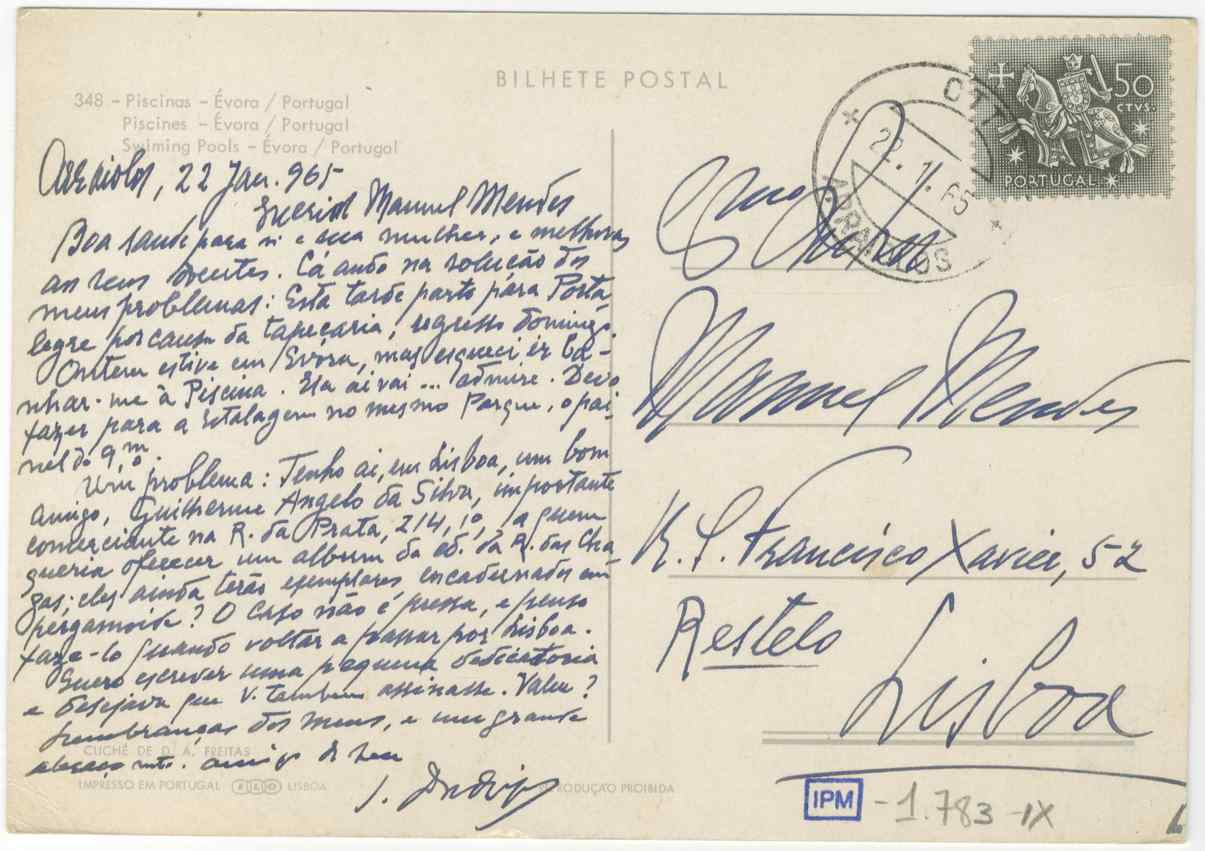 BILHETE POSTAL
348 – Piscinas – Évora / Portugal
Piscines – Évora / Portugal
Swiming Pools – Évora / Portugal
50
CTVS.
PORTUGAL
CTT
22.1.65
ARRAIOLOS
Arraiolos, 22 Jan. 965
Querido Manuel Mendes
Boa saude para si e sua mulher, e melhoras
aos seus doentes. Cá ando na solução dos
meus problemas: Esta tarde parto para Porta
legre por causa da tapeçaria; regresso domingo.
Ontem estive em Evora, mas esqueci ir ba-
nhar-me à Piscina. Ela aí vai... admire. Devo
fazer para a Estalagem no mesmo Parque, o pai-
nel de 9,m
Um problema: Tenho aí, em Lisboa, um bom
amigo, Guilherme Angelo da Silva, importante
comerciante na R. da Prata, 214, 1º, a quem
queria oferecer um album da ed. da R. das Cha-
gas; eles ainda terão exemplares encadernados em
pergamoide? O caso não é pressa, e penso
faze-lo quando voltar a passar por Lisboa.
Quero escrever uma pequena dedicatoria
e desejava que V. tambem assinasse. Valeu?
Lembranças dos meus, e um grande
abraço mto. amigo do seu
Manuel Mendes
R. S. Francisco Xavier, 52
Restelo
Lisboa
CLICHÉ DE D. A. FREITAS
IMPRESSO EM PORTUGAL LISBOA REPRODUÇÃO PROIBIDA
IPM - 1.783 -IX